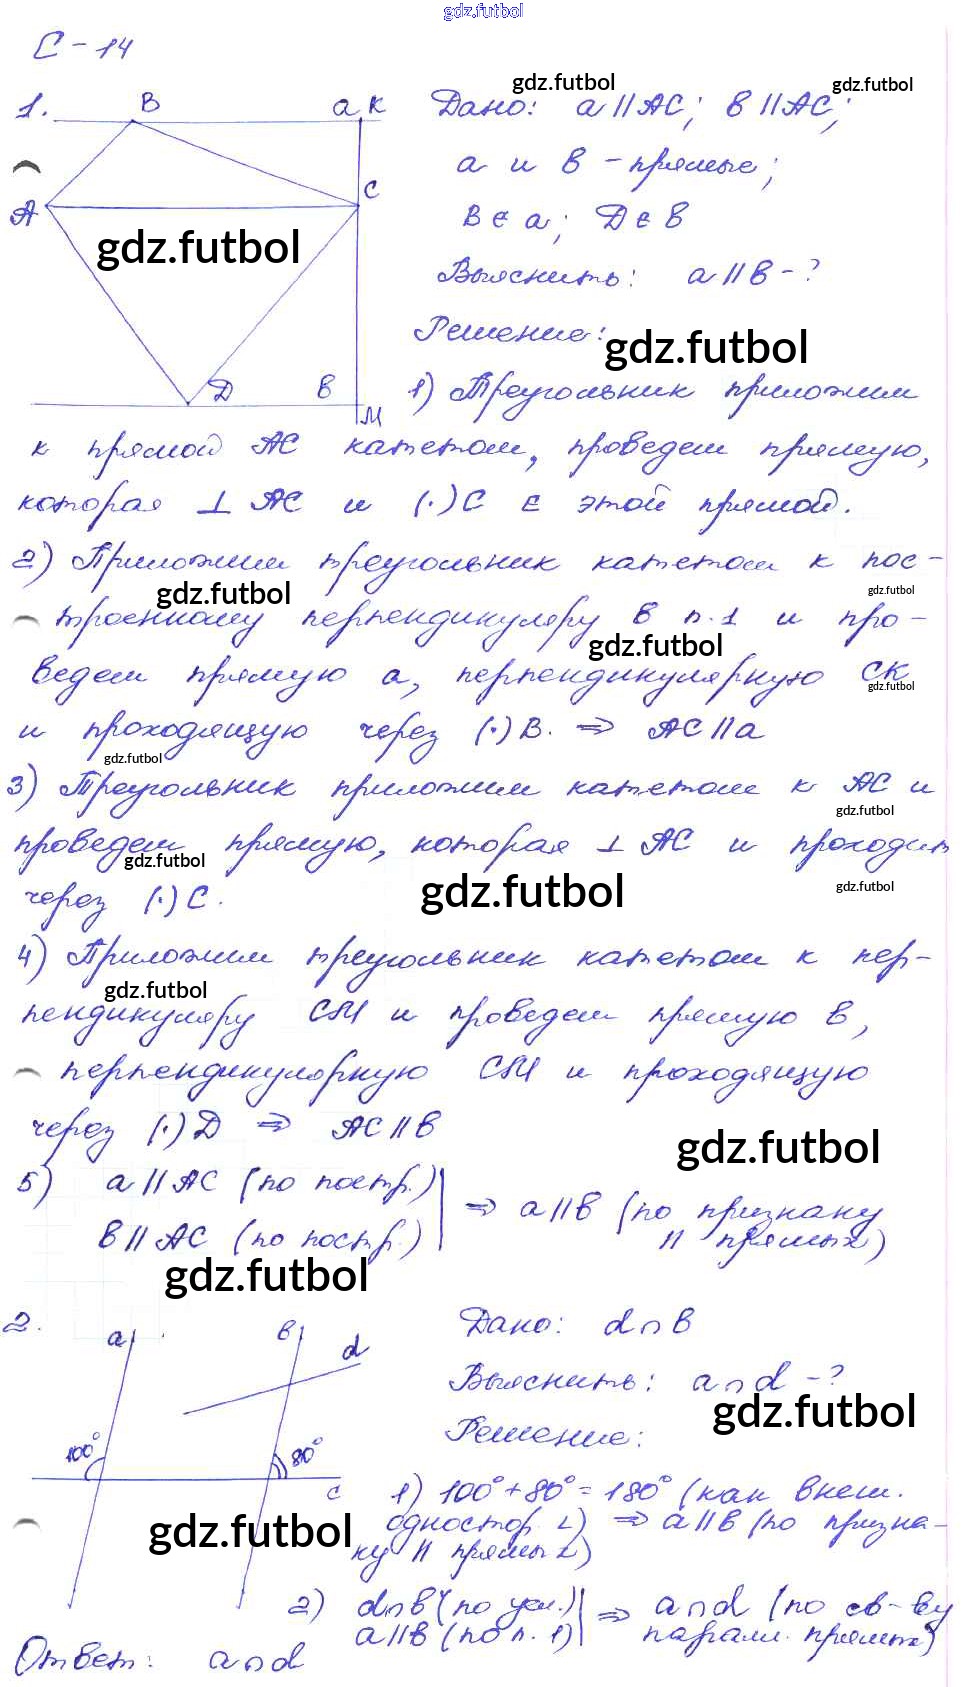 gdz.futbol
С-14
gdz.futbol gdz.futbol
1. B a K Дано: a∥AC; b∥AC;
a и b - прямые;
A C B∈a; D∈b
gdz.futbol
Выяснить: a∥b-?
Решение:
gdz.futbol
D b M 1) Треугольник приложим
к прямой AC катетом, проведем прямую,
которая ⊥ AC и (·)C ∈ этой прямой.
2) Приложим треугольник катетом к пос-
gdz.futbol gdz.futbol
троенному перпендикуляру в п.1 и про-
gdz.futbol
ведем прямую a, перпендикулярную CK
gdz.futbol
и проходящую через (·)B. ⇒ AC∥a
gdz.futbol
3) Треугольник приложим катетом к AC и
gdz.futbol
проведем прямую, которая ⊥ AC и проходит
gdz.futbol
через (·)C.
gdz.futbol gdz.futbol
4) Приложим треугольник катетом к пер-
gdz.futbol
пендикуляру CM и проведем прямую b,
перпендикулярную CM и проходящую
через (·)D ⇒ AC∥b
gdz.futbol
5) a∥AC (по постр.)
b∥AC (по постр.) ⇒ a∥b (по признаку
∥ прямых)
gdz.futbol
2. a b d Дано: d∩b
Выяснить: a∩d-?
gdz.futbol
Решение:
100° 80° c
1) 100°+80°=180° (как внеш.
gdz.futbol
одностор. ∠) ⇒ a∥b (по призна-
ку ∥ прямых)
2) d∩b (по усл.)
a∥b (по п. 1) ⇒ a∩d (по св-ву
паралл. прямых)
Ответ: a∩d